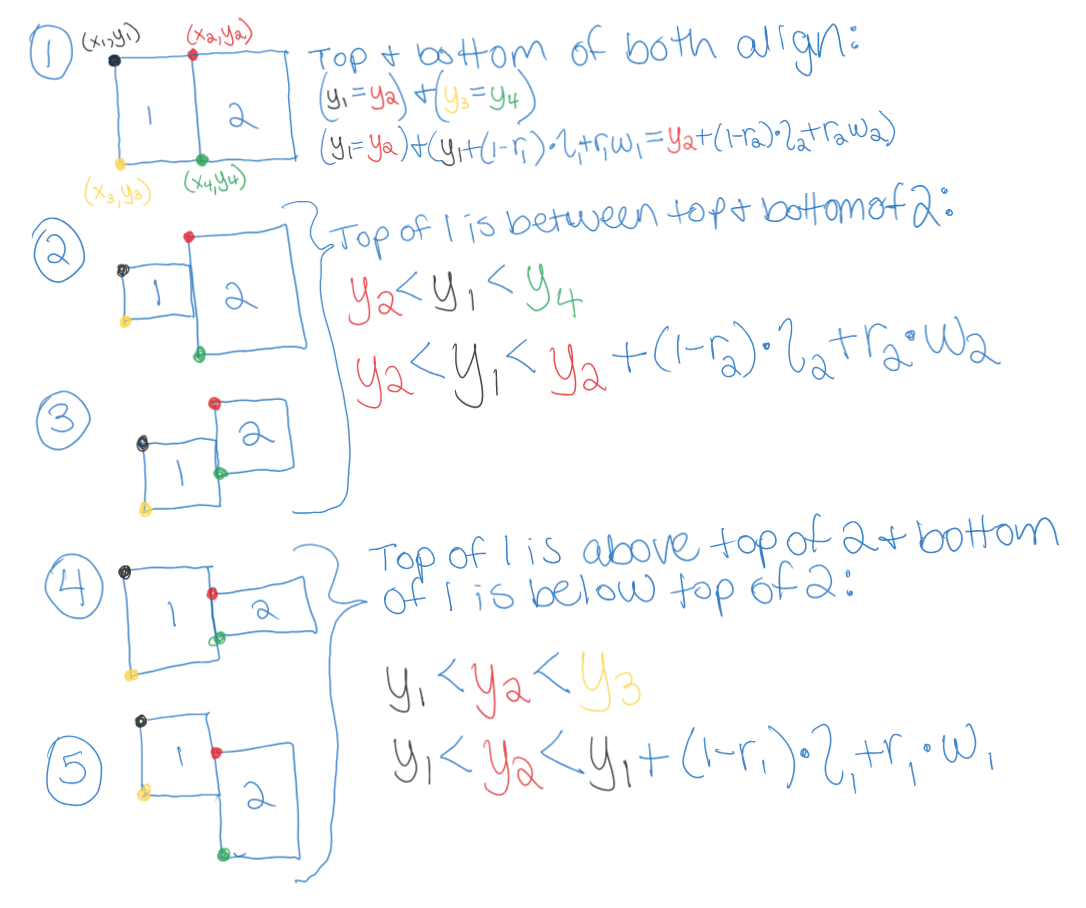 ① (x₁,y₁) (x₂,y₂) Top + bottom of both align:
(y₁=y₂)+(y₃=y₄)
1 2
(y₁=y₂)+(y₁+(1-r₁)·l₁+r₁w₁=y₂+(1-r₂)·l₂+r₂w₂)
(x₃,y₃) (x₄,y₄)
② Top of 1 is between top + bottom of 2:
1 2
y₂<y₁<y₄
y₂<y₁<y₂+(1-r₂)·l₂+r₂·w₂
③ 2
1
④ Top of 1 is above top of 2 + bottom
of 1 is below top of 2:
1 2
y₁<y₂<y₃
y₁<y₂<y₁+(1-r₁)·l₁+r₁·w₁
⑤ 1
2